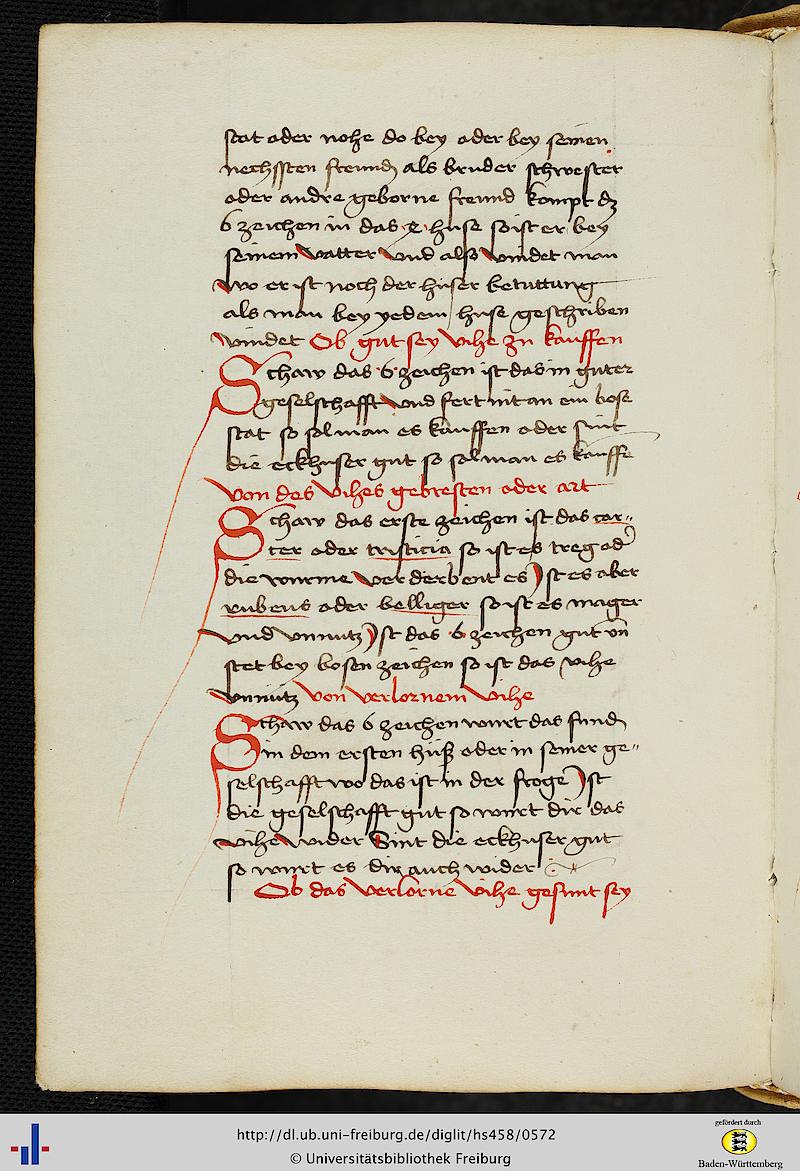 stat oder nohe do bey oder bey seinen
nechssten freund als bruder schwester
oder andre geborne freund kompt dz
6 zeichen in das huse so ist er bey
seinem vatter vnd also vindet man
wo er ist noch der huser betuttung
als man bey yedem huse geschriben
vindet Ob gut sey vihe zu kauffen
Schaw das ·6· zeichen ist das in guter
geselschafft vnd fert nit an ein bose
stat so sol man es kauffen oder sint
die eckhuser gut so sol man es kauffe
von des vihes gebresten oder art
Schaw das erste zeichen ist das car〃
cer oder tristicia so ist es treg od
die wurme verderbent es Ist es aber
rubeus oder belliger so ist es mager
vnd vnnutz Ist das ·6· zeichen gut vn̄
stet bey bosen zeichen so ist das vihe
vnnutz von verlornem vihe
Schaw das 6 zeichen wurt das fund
in dem ersten huß oder in seiner ge〃
selschafft wo das ist in der froge Ist
die geselschafft gut so wurt dir das
vihe wider Sint die eckhuser gut
so wurt es dir auch wider
Ob das verlorne vihe gesunt sey
http://dl.ub.uni-freiburg.de/diglit/hs458/0572
© Universitätsbibliothek Freiburg
gefördert durch
Baden-Württemberg